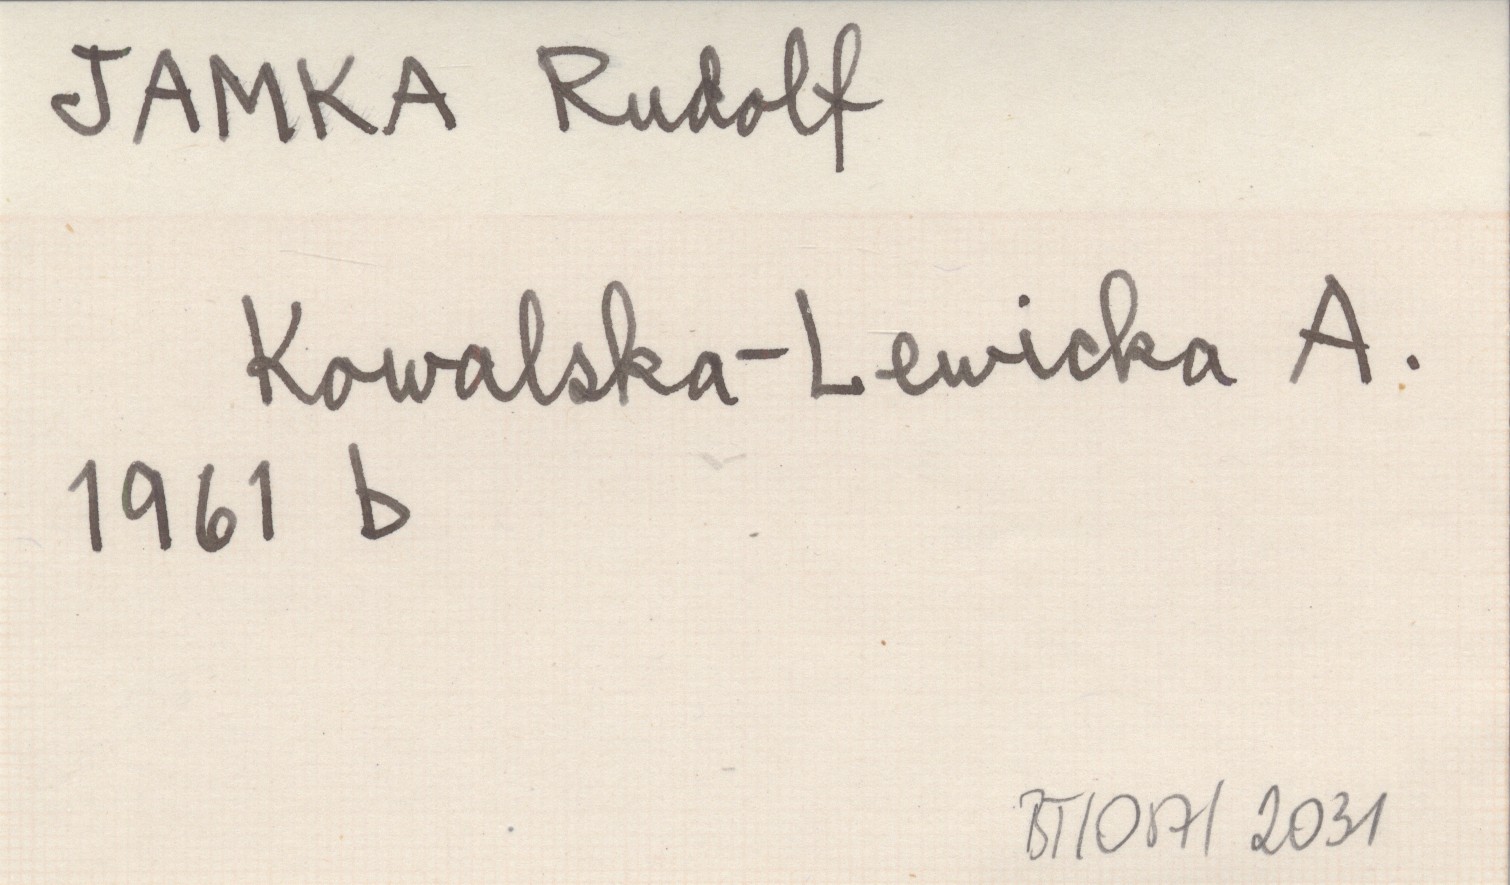 JAMKA Rudolf
Kowalska-Lewicka A.
1961 b
BT/087/ 2031